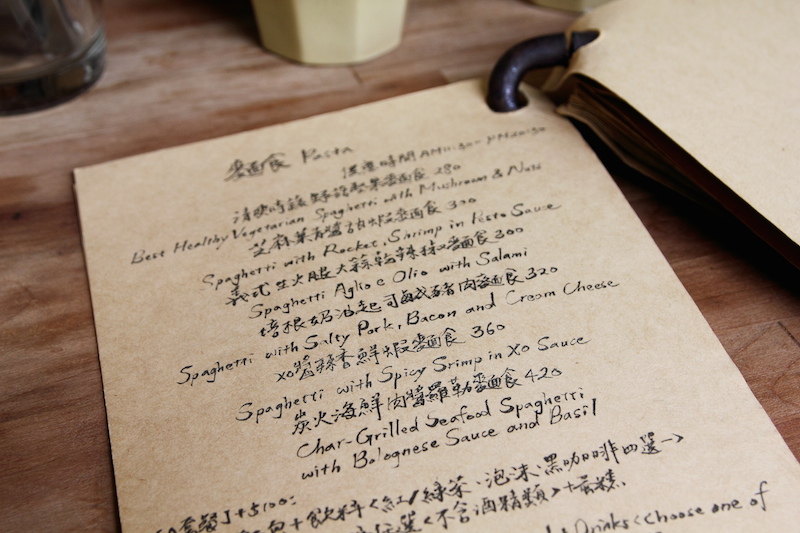 麵食 Pasta
供應時間 AM11:30- PM20:30
清爽時蔬野菇堅果麵食 280
Best Healthy Vegetarian Spaghetti with Mushroom & Nuts
芝麻葉青醬鮮蝦麵食 300
Spaghetti with Rocket, Shrimp in Pesto Sauce
義式生火腿大蒜乾辣椒麵食 300
Spaghetti Aglio e Olio with Salami
培根奶油起司鹹豬肉麵食 320
Spaghetti with Salty Pork, Bacon and Cream Cheese
XO醬辣香鮮蝦麵食 360
Spaghetti with Spicy Srimp in XO Sauce
炭火海鮮肉醬羅勒麵食 420
Char-Grilled Seafood Spaghetti
with Bolognese Sauce and Basil
套餐]+$100:
+飲料<紅/綠茶、泡沫黑咖啡四選一>
任選<不含酒精類>+蛋糕.
Drinks<choose one of